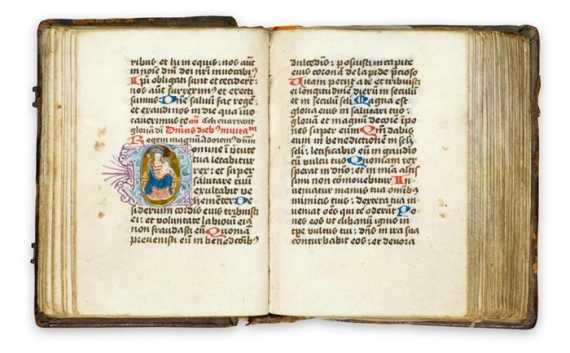 ribus et hi in equis: nos aut̄
in noīe dn̄i dei nr̄i inuocabimꝰ
Ip̄i obligati sunt et ceciderūt:
nos aut̄ surrexim̄us et erecti
sumus Dn̄e saluū fac regē:
et exaudi nos in die qua iuo
cauerimus te
gloriā
Domine ī uirtute
tua letabitur
rex: et super
salutare tuū
exultabit ue
hementer De
siderium cordis eius tribuisti
ei: et uoluntate labioꝝ eiꝰ
non fraudasti eū Quoniā
preuenisti eum in benedictōibꝰ
dulcedīs: posuisti in capite
eius coronā de lapide p̄cioso
Uitam petiit a te et tribuisti
ei longitudinē dierū in seculū
et in seculū seculi Magna est
gloria eius in salutari tuo:
gloriā et magnū decorē īpo
nes super eum Qm̄ dabis
eum in benedictionē in seculū
seculi: letificabis eum in gaudio
cū uultu tuo Quoniam rex
sperat in dn̄o: et in mīa altis
simi non cōmouebitur In
ueniatur manus tua omnibꝰ
inimicis tuis: dextera tua in
ueniat om̄s qui te oderūt Po
nes eos ut clibanū ignis in
tp̄e uultus tui: dn̄s in ira sua
conturbabit eos: et deuora